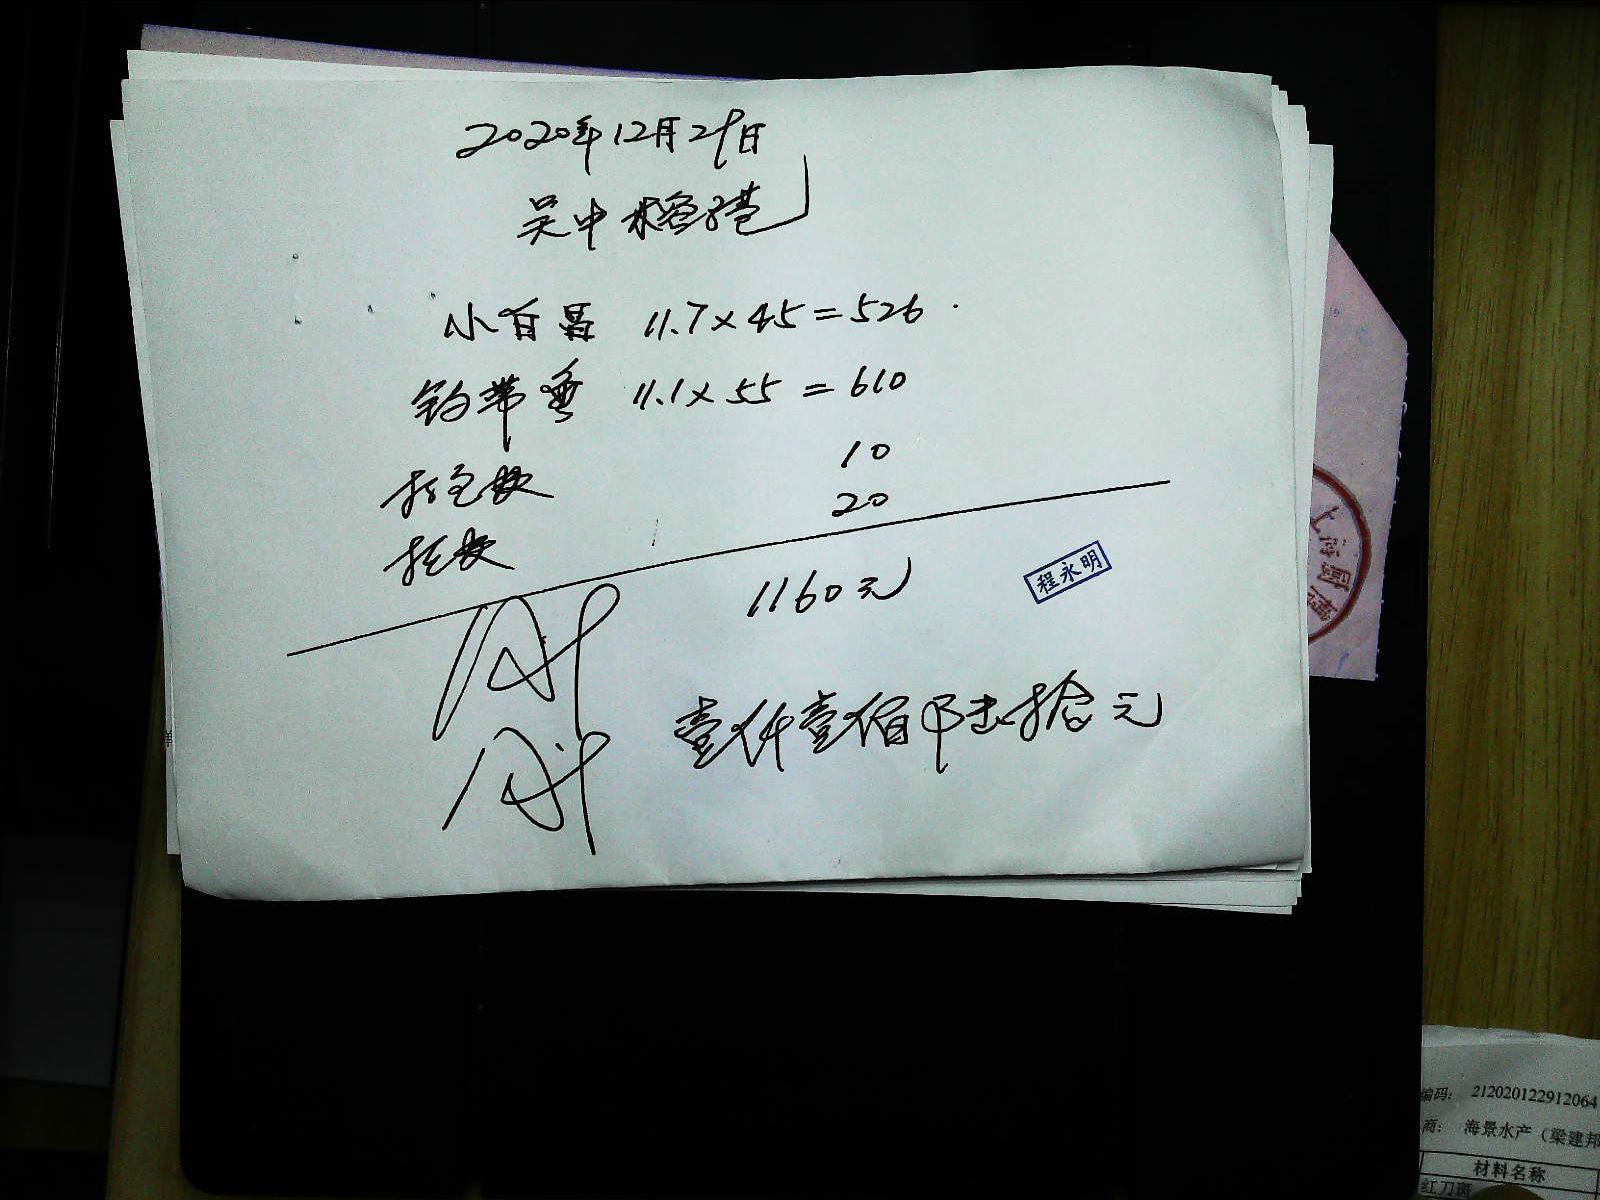 2020年12月29日
吴中稻香巷
小百昌 11.7×45=526
钓带鱼 11.1×55=610
10
20
1160元
程永明
壹仟壹佰陆拾元
上海
编码: 212020122912064
商: 海景水产（梁建邦
材料名称
红刀斑